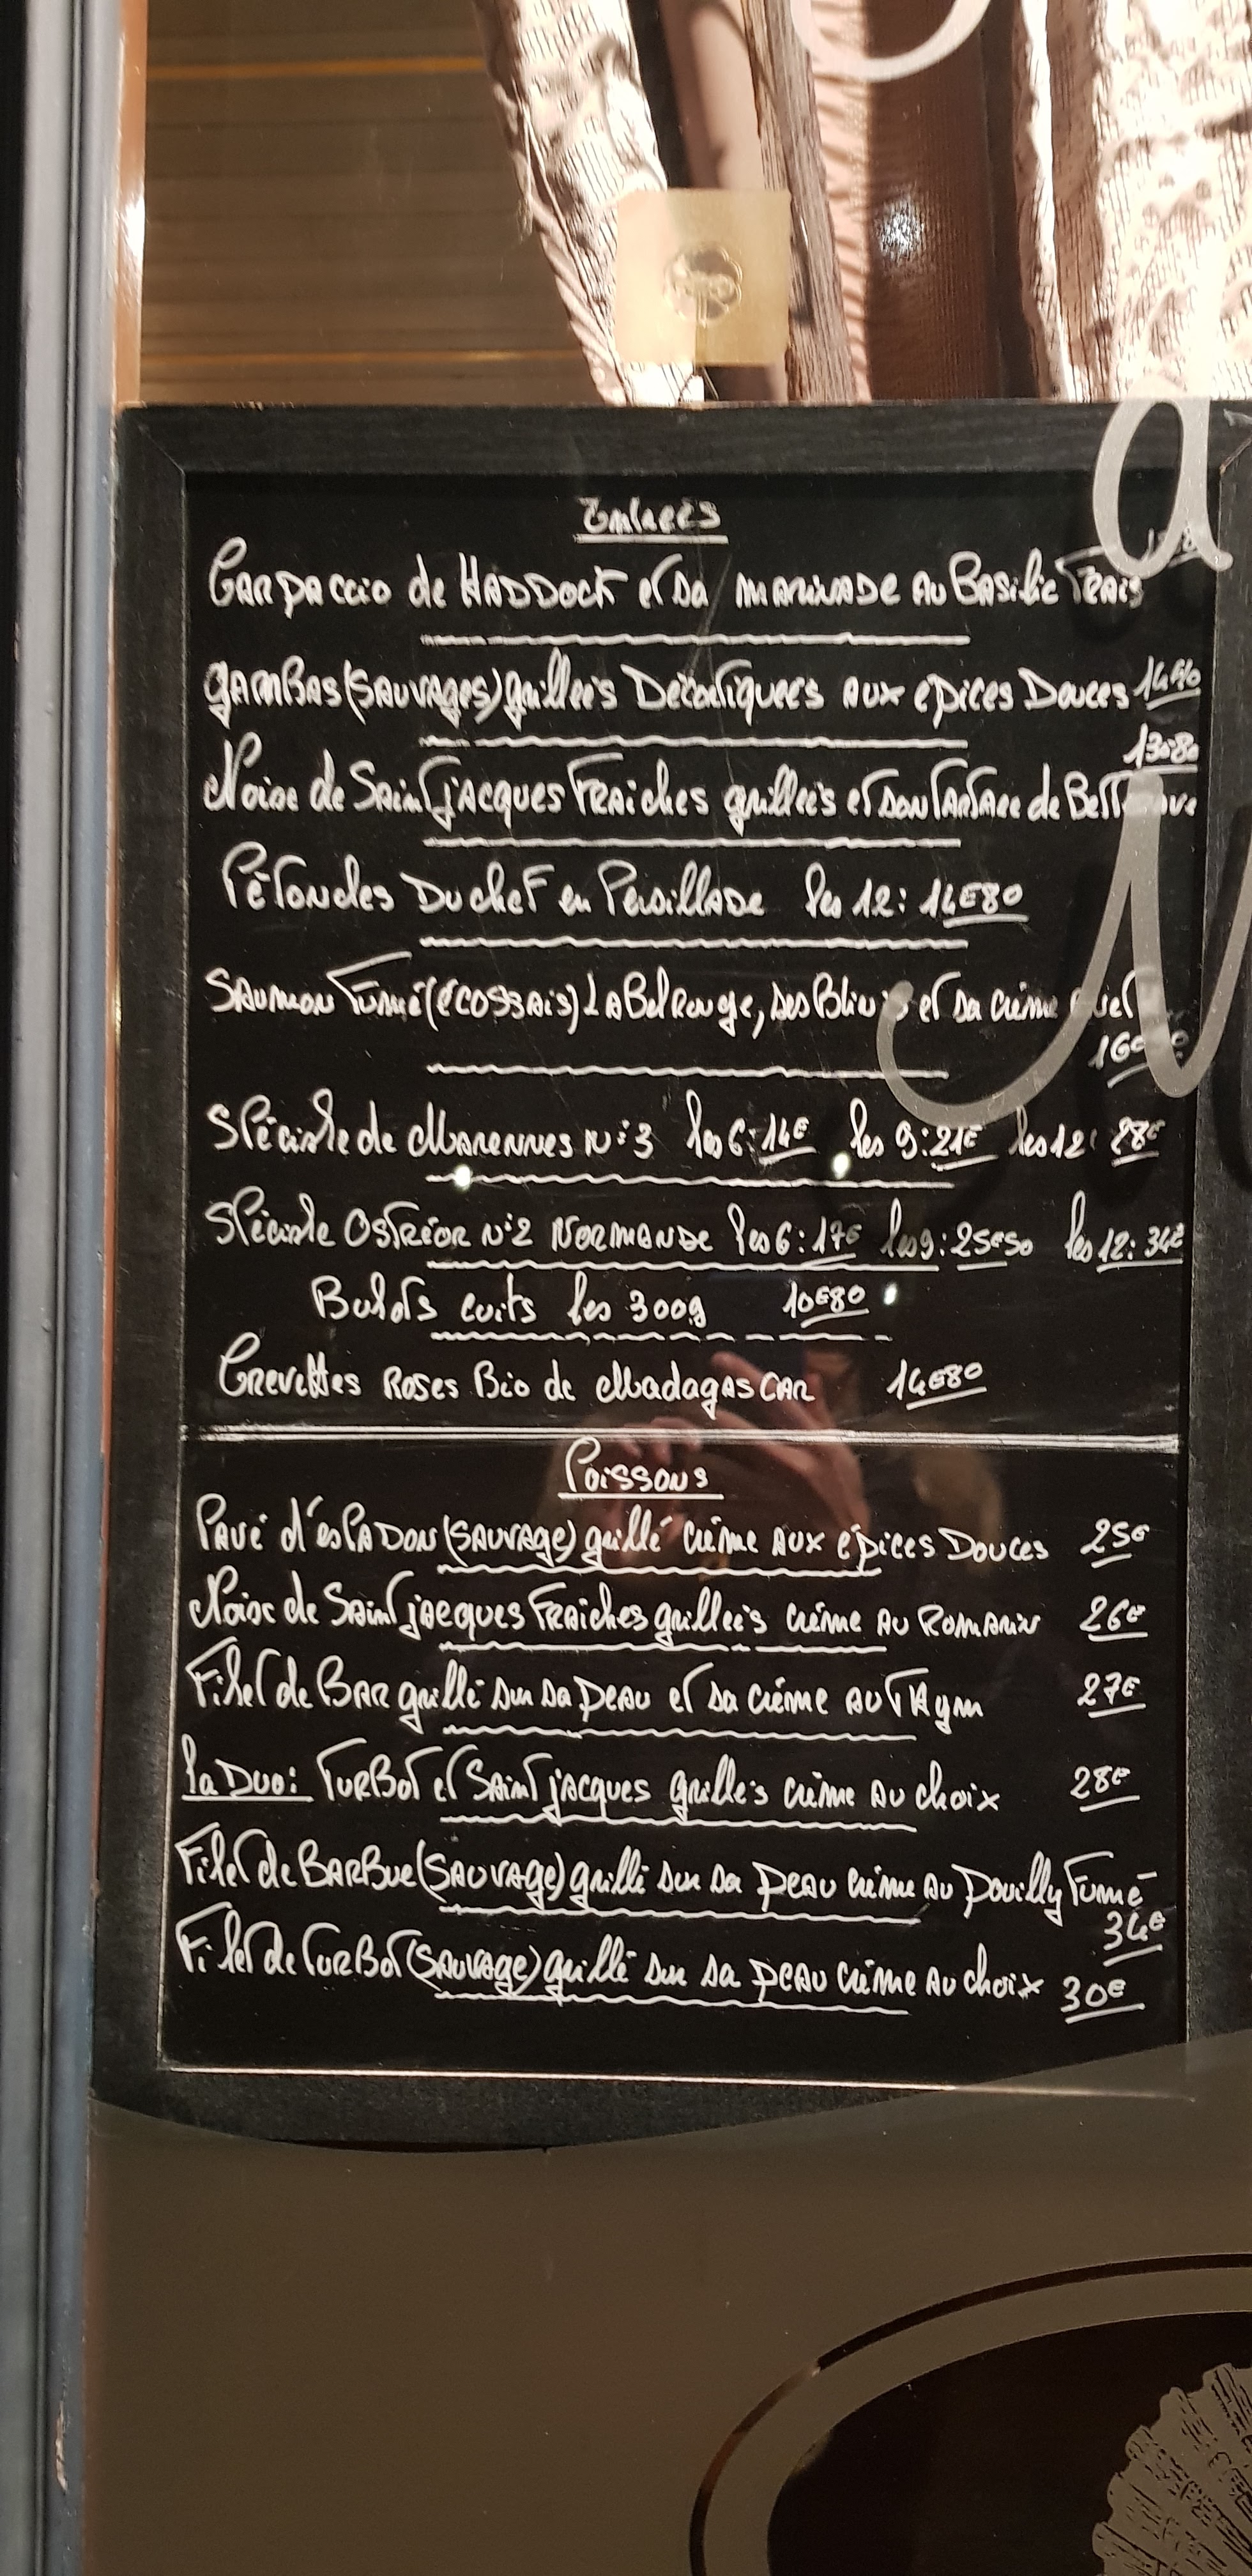 Entrées
Carpaccio de HADDOCK et sa marinade au Basilic Frais
Gambas (sauvages) grillées Décortiquées aux épices Douces 14€40
13€80
Noise de Saint jacques Fraiches grillées et son Tartare de
Pétoncles Du chef en Persillade les 12: 14€80
Saumon Fumé (écossais) LaBel Rouge, ses Blinis et sa crème
Spéciale de Marennes N°3 les 6: 14€ les 9: 21€ les 12: 28€
Spéciale Ostréor N°2 Normande les 6: 17€ les 9: 25€50 les 12: 34€
Bulots cuits les 300g 10€80
Crevettes Roses Bio de Madagascar 14€80
Poissons
Pavé d'espadon (sauvage) grillé crème aux épices Douces 25€
Noise de Saint jacques Fraiches grillées crème au Romarin 26€
Filet de Bar grillé sur sa peau et sa crème au Thym 27€
La Duo: Turbot et Saint jacques grillés crème au choix 28€
Filet de Barbue (sauvage) grillé sur sa peau crème au Pouilly Fumé
34€
Filet de Turbot (sauvage) grillé sur sa peau crème au choix 30€